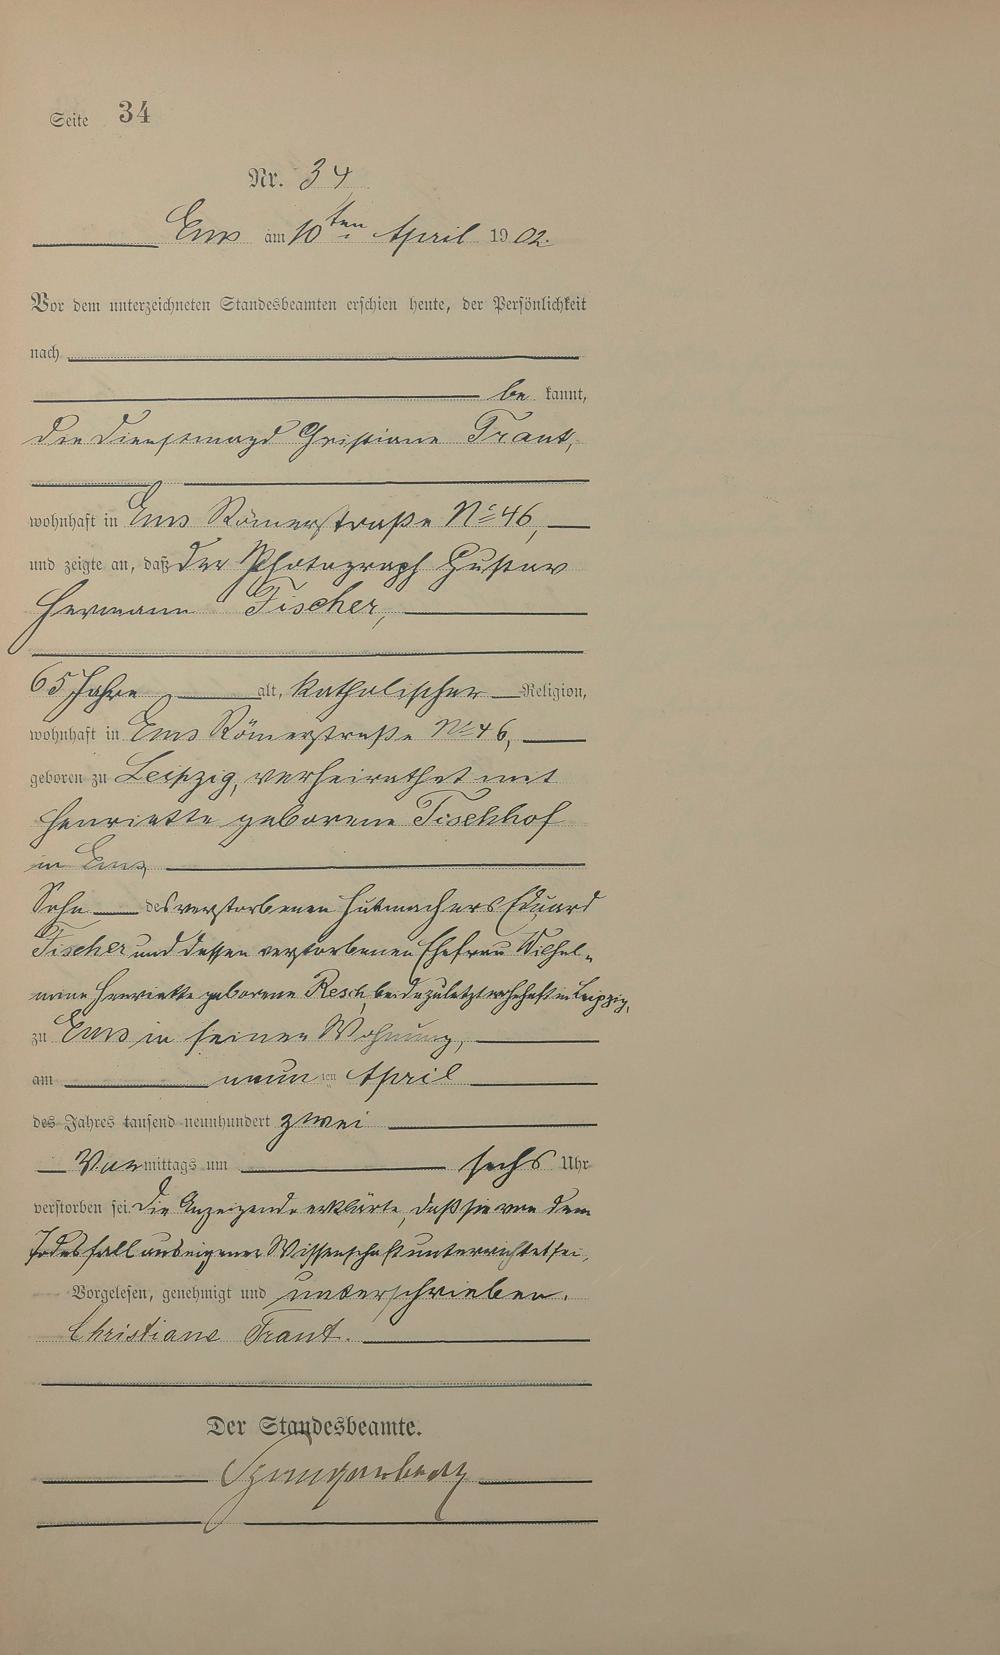 Seite 34
Nr. 34
Ems am 10ten April 1902.
Vor dem unterzeichneten Standesbeamten erschien heute, der Persönlichkeit
nach
be kannt,
die Dienstmagd Christiane Traut,
wohnhaft in Ems Römerstraße No 46,
und zeigte an, daß der Photograph Gustav
Hermann Fischer,
65 Jahre alt, katholischer Religion,
wohnhaft in Ems Römerstraße No 46,
geboren zu Leipzig, verheirathet mit
Henriette geborene Tischhof
in Ems
Sohn des verstorbenen Hutmachers Eduard
Fischer und dessen verstorbenen Ehefrau Wilhel-
mine Henriette geborene Resch, beide zuletzt wohnhaft in Leipzig,
zu Ems in seiner Wohnung,
am neun ten April
des Jahres tausend neunhundert zwei
Vor mittags um sechs Uhr
verstorben sei. Die Anzeigende erklärte, daß sie von dem
Todesfall aus eigener Wissenschaft unterrichtet sei.
Vorgelesen, genehmigt und unterschrieben.
Christiane Traut.
Der Standesbeamte.